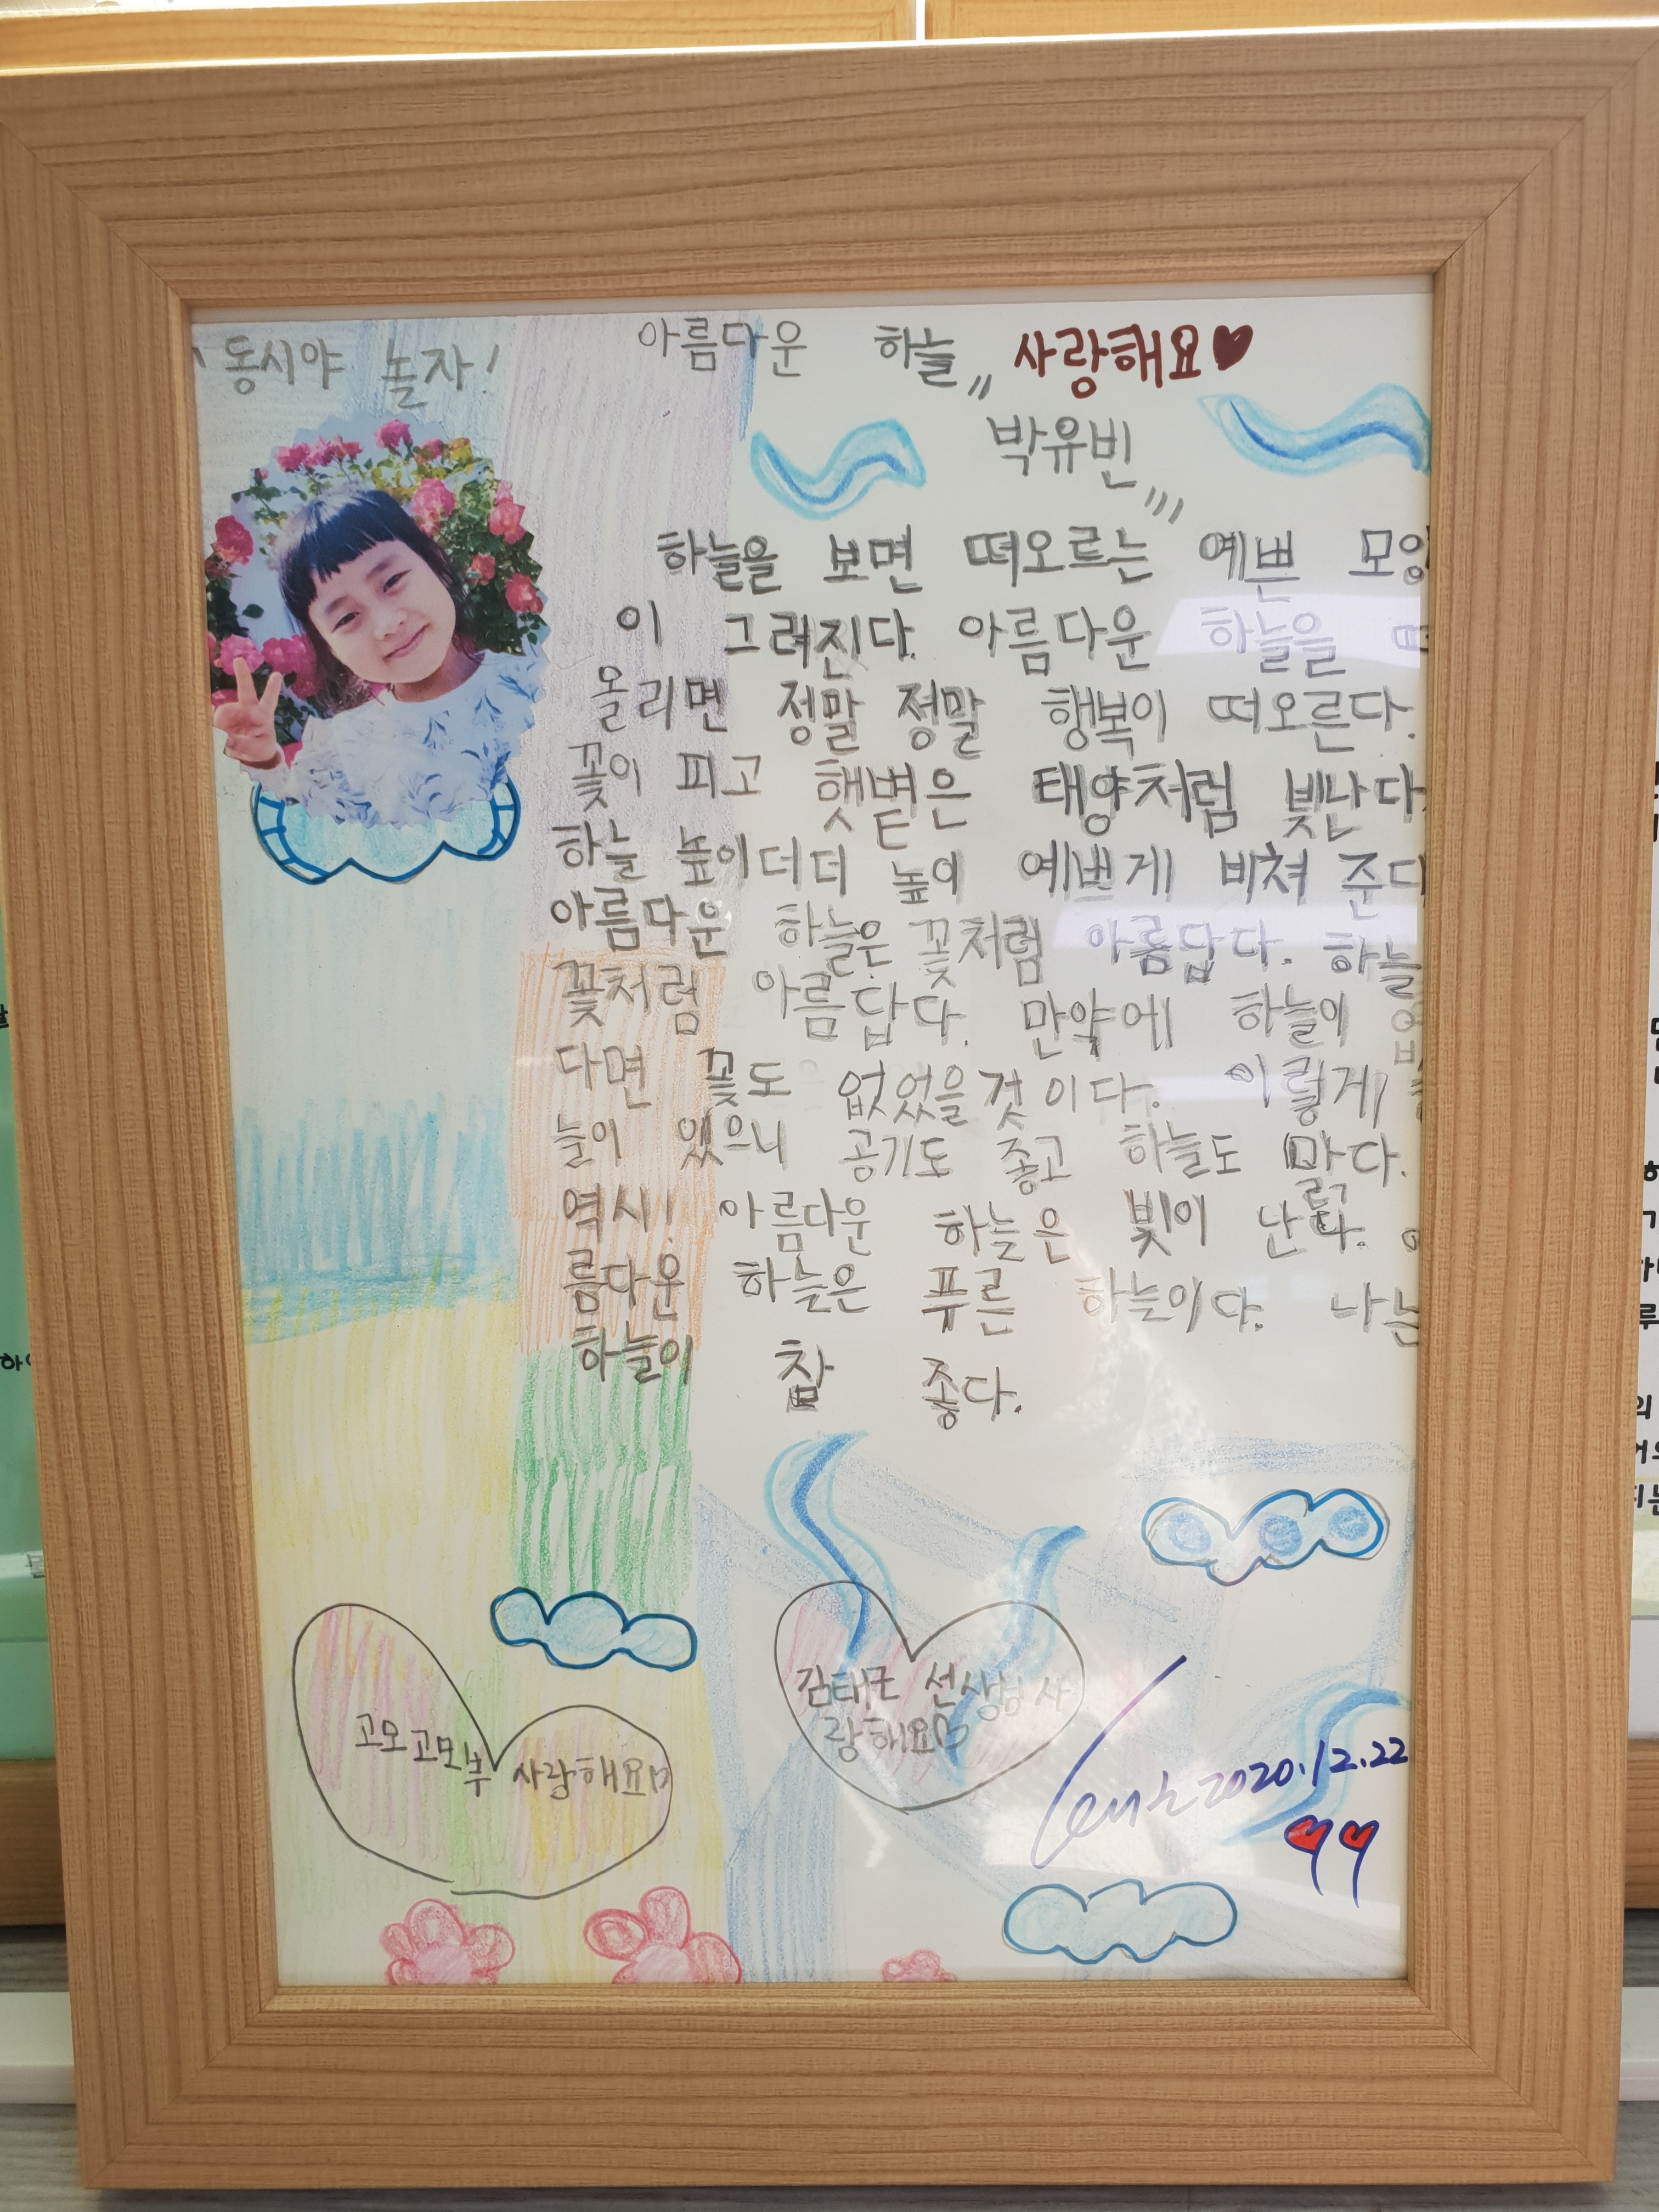 동시야 놀자!
아름다운 하늘 사랑해요♥
박유빈
하늘을 보면 떠오르는 예쁜 모양
이 그려진다. 아름다운 하늘을 떠
올리면 정말 정말 행복이 떠오른다.
꽃이 피고 햇볕은 태양처럼 빛난다.
하늘 높이더더 높이 예쁘게 비쳐 준다
아름다운 하늘은 꽃처럼 아름답다. 하늘
꽃처럼 아름답다. 만약에 하늘이
다면 꽃도 없었을것이다. 이렇게
늘이 있으니 공기도 좋고 하늘도 맑다.
역시! 아름다운 하늘은 빛이 난다. 아
름다운 하늘은 푸른 하늘이다. 나는
하늘이 참 좋다.
고모고모부 사랑해요♡
선생님 사
랑해요♡
2020.12.22